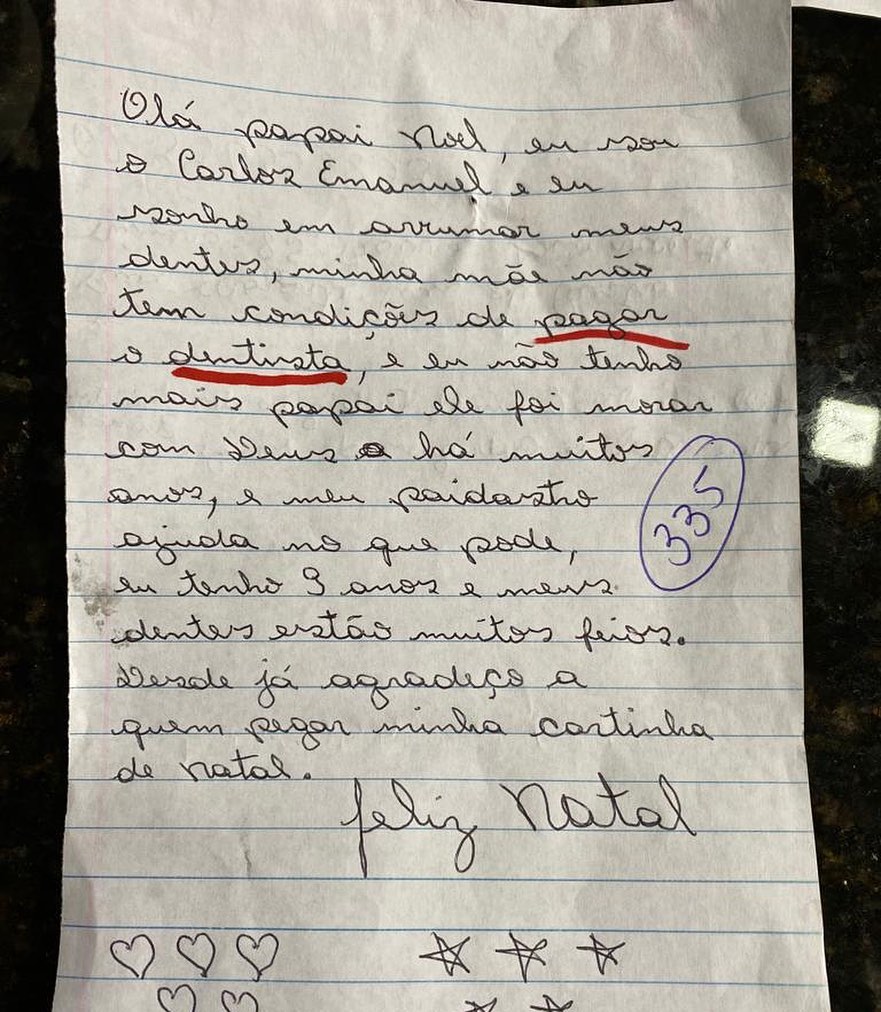 Olá papai Noel, eu sou
o Carlos Emanuel e eu
sonho em arrumar meus
dentes, minha mãe não
tem condições de pagar
o dentista, e eu não tenho
mais papai ele foi morar
com Deus a há muitos
anos, e meu paidastro
ajuda no que pode,
335
eu tenho 9 anos e meus
dentes estão muitos feios.
Desde já agradeço a
quem pegar minha cartinha
de natal.
feliz Natal